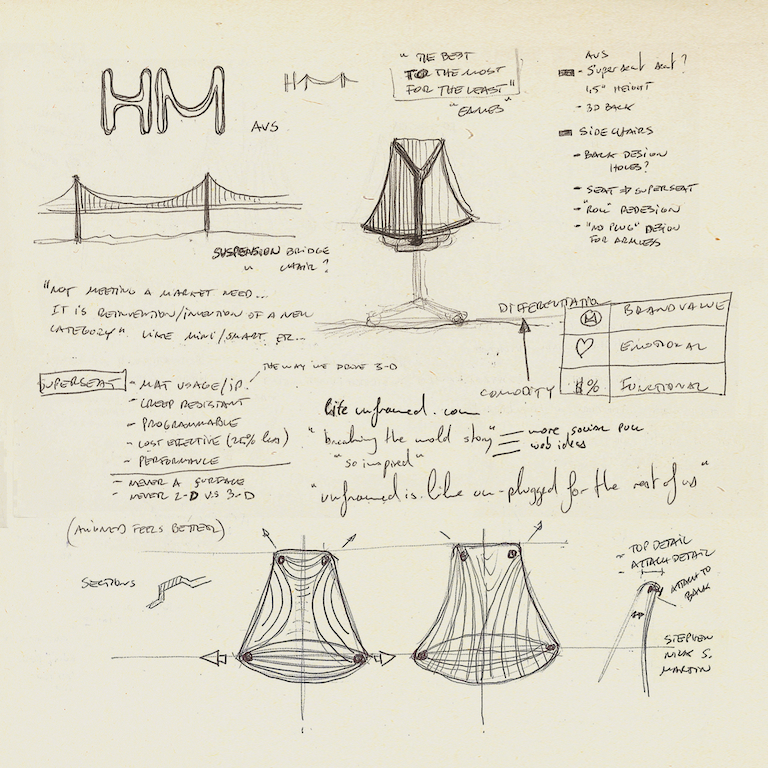 HM
AVS
HM
"THE BEST
FOR THE MOST
FOR THE LEAST"
"EAMES"
AVS
- Superseat seat?
1,5" HEIGHT
- 3D BACK
SIDE CHAIRS
- BACK DESIGN
HOLES?
- SEAT => SUPERSEAT
- REDESIGN
- "NO PLUG" DESIGN
FOR ARMLESS
SUSPENSION BRIDGE
CHAIR?
"NOT MEETING A MARKET NEED...
IT IS REINVENTION/INVENTION OF A NEW
CATEGORY" LIKE MINI/SMART, ETC...
DIFFERENTIATIO
BRAND VALUE
EMOTIONAL
$% FUNCTIONAL
COMODITY
THE WAY WE DRIVE 3-D
SUPERSEAT
- MAT USAGE/IP.
- CREEP RESISTANT
- PROGRAMMABLE
- COST EFFECTIVE (25% less)
- PERFORMANCE
- NEVER A SURFACE
- NEVER 2-D V.S 3-D
(ALIGNED FEELS BETTER)
life unframed.com
"breaking the mold story"
more social
web ideas
"so inspired"
"unframed is like un-plugged for the rest of us"
SECTIONS
- TOP DETAIL
- ATTACH DETAIL
ATTACH TO
BACK
STEPHEN
NICK S.
MARTIN